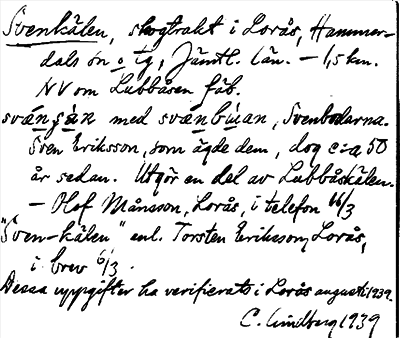 Svenkälen, skogtrakt i Lorås, Hammer-
dals sn o tg, Jämtl. län. – 1,5 km.
NV om Lubbåsen fäb.
med svænbuan, Svenbodarna.
Sven Eriksson, som ägde dem, dog c:a 50
år sedan. Utgör en del av Lubbåskälen.
– Olof Månsson, Lorås, i telefon 16/3
"Sven-kälen" enl. Torsten Eriksson, Lorås,
i brev 6/3.
Dessa uppgifter ha verifierats i Lorås augusti 1939.
C. Lindberg 1939